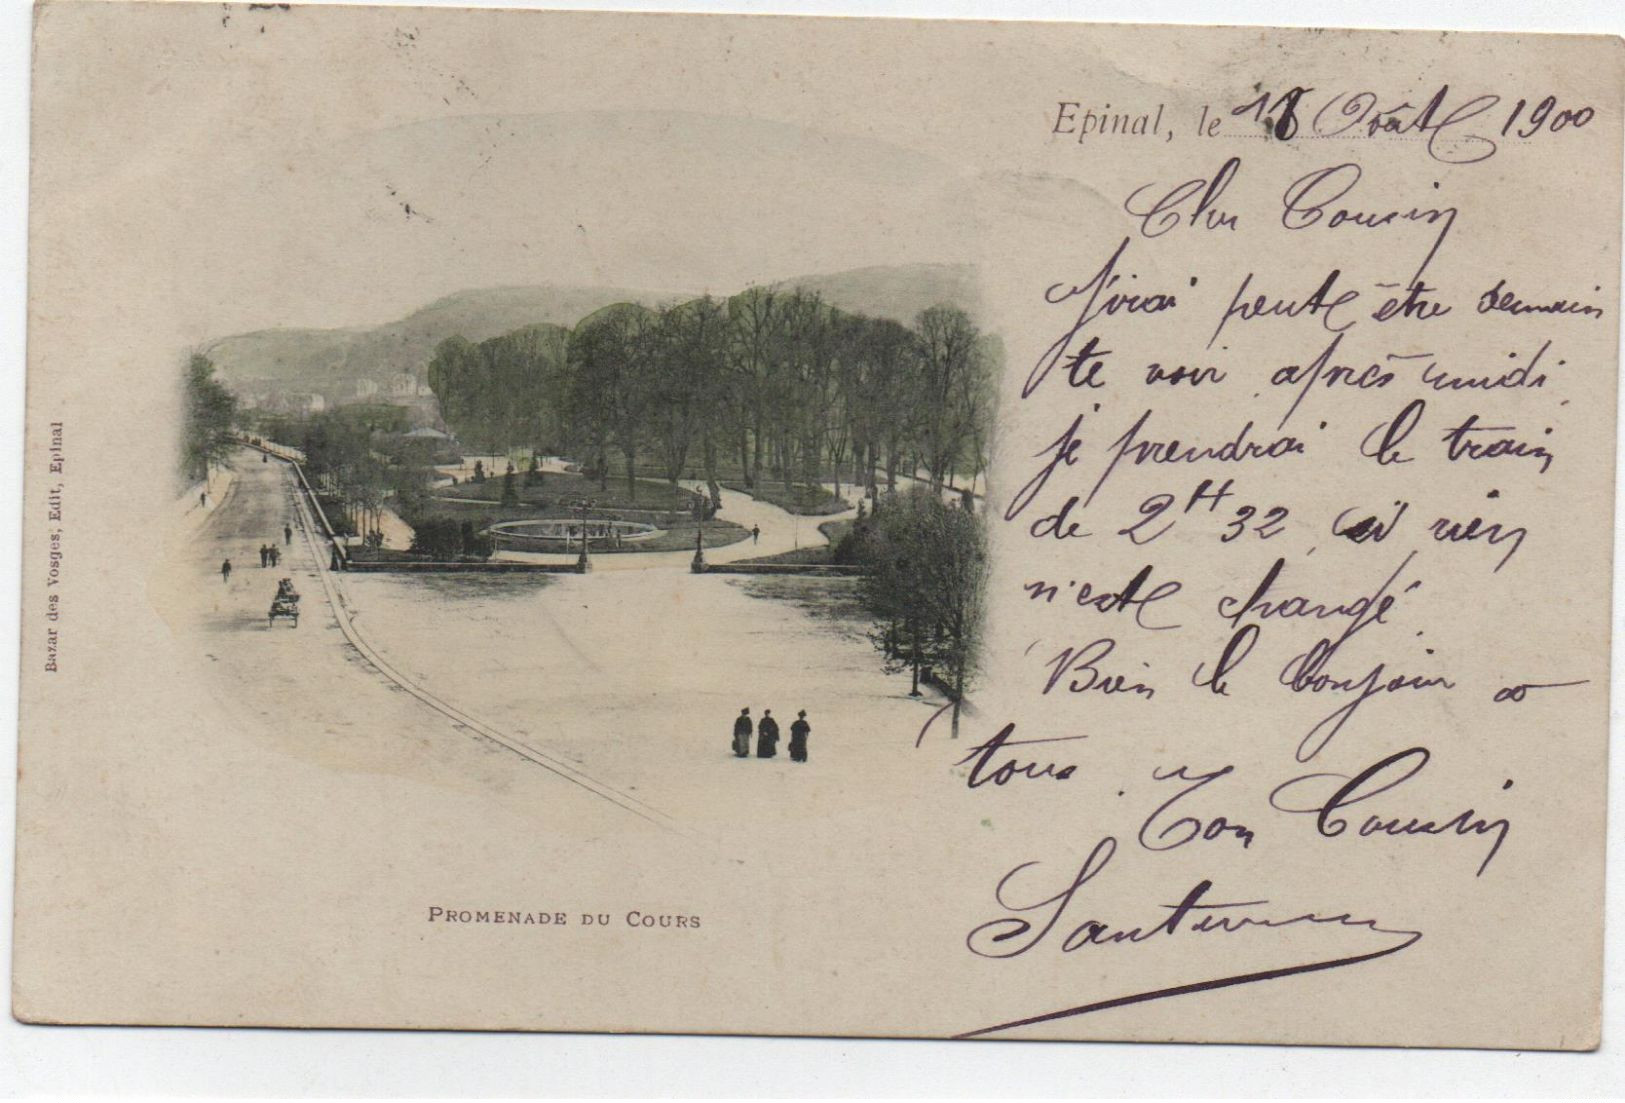 Epinal, le 18 Août 1900
Cher Cousin
J'irai peut être demain
te voir après midi
je prendrai le train
de 2H32, si rien
n'est changé.
Bien le bonjour à
tous. Ton Cousin
PROMENADE DU COURS
Bazar des Vosges, Edit, Epinal